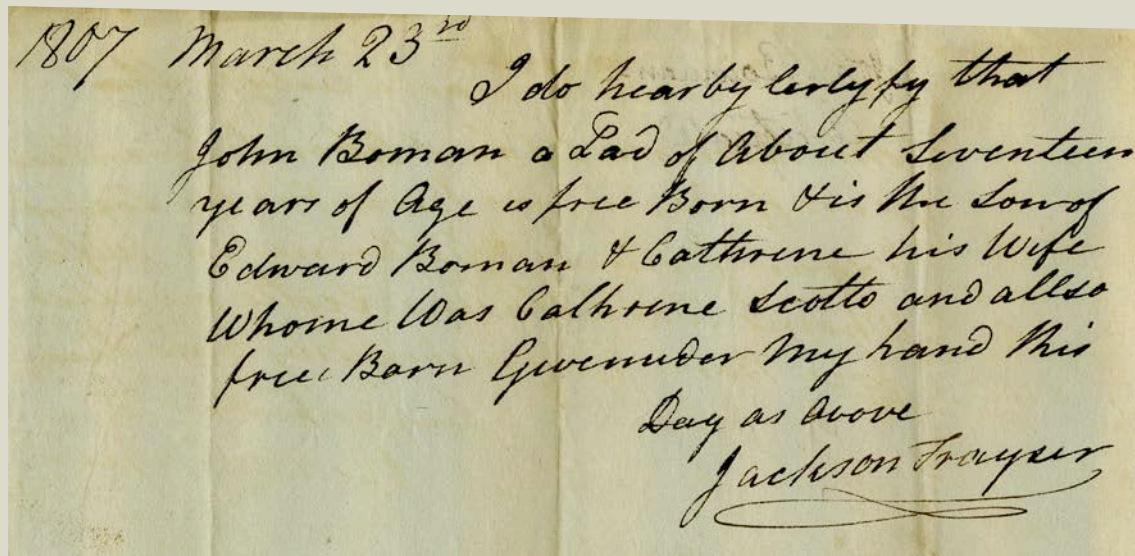 1807 March 23rd
I do hearby certyfy that
John Boman a Lad of About Seventeen
years of Age is free Born & is the Son of
Edward Boman & Cathrene his Wife
Whome Was Cathrene Scotto and allso
free Born Givenuder My hand this
Day as above
Jackson Frayser